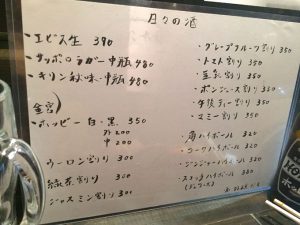 日々の酒
・エビス生 390
・サッポロラガー中瓶 480
・キリン秋味・中瓶 480
金宮)
・ホッピー 白・黒 350
外 200
中 200
・ウーロン割り 300
・紅茶割り 300
・ジャスミン割り 300
・グレープフルーツ割り 350
・トマト割り 350
・豆乳割り 350
・ポンジュース割り 350
・午後ティー割り 350
・コミー割り 350
・角ハイボール 320
・コークハイボール 320
・ジンジャーハイボール
・スコッチハイボール 380
(デュワーズ)